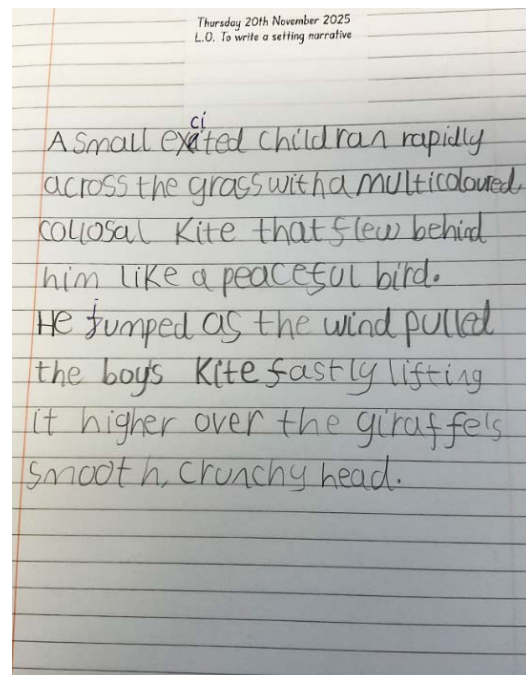 Thursday 20th November 2025
L.O. To write a setting narrative
ci
A small exited child ran rapidly
across the grass with a multicoloured,
collosal kite that flew behind
him like a peaceful bird.
He jumped as the wind pulled
the boy's kite fastly lifting
it higher over the giraffe's
smooth, crunchy head.